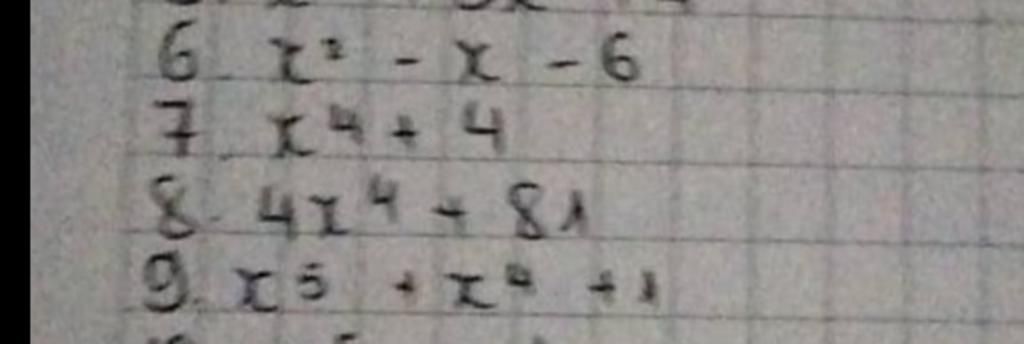 6. x² - x - 6
7. x⁴ + 4
8. 4x⁴ + 81
9. x⁵ + x⁴ + 1